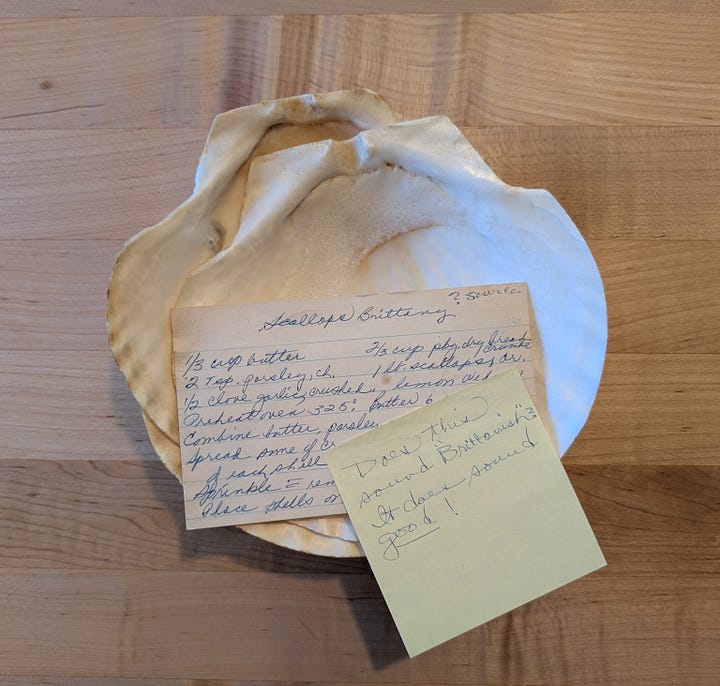 ? Source
Scallops Brittany
1/3 cup butter 2/3 cup pkg. dry bread crumbs
2 Tsp. parsley, ch. 1 lb. scallops, dr.
1/2 clove garlic, crushed lemon wed
Preheat oven 325°. Butter 6
Combine butter, parsley
Spread some of cr
of each shell
Sprinkle = rem
Place shells on
Does this
sound "Brittanish"?
It does sound
good!